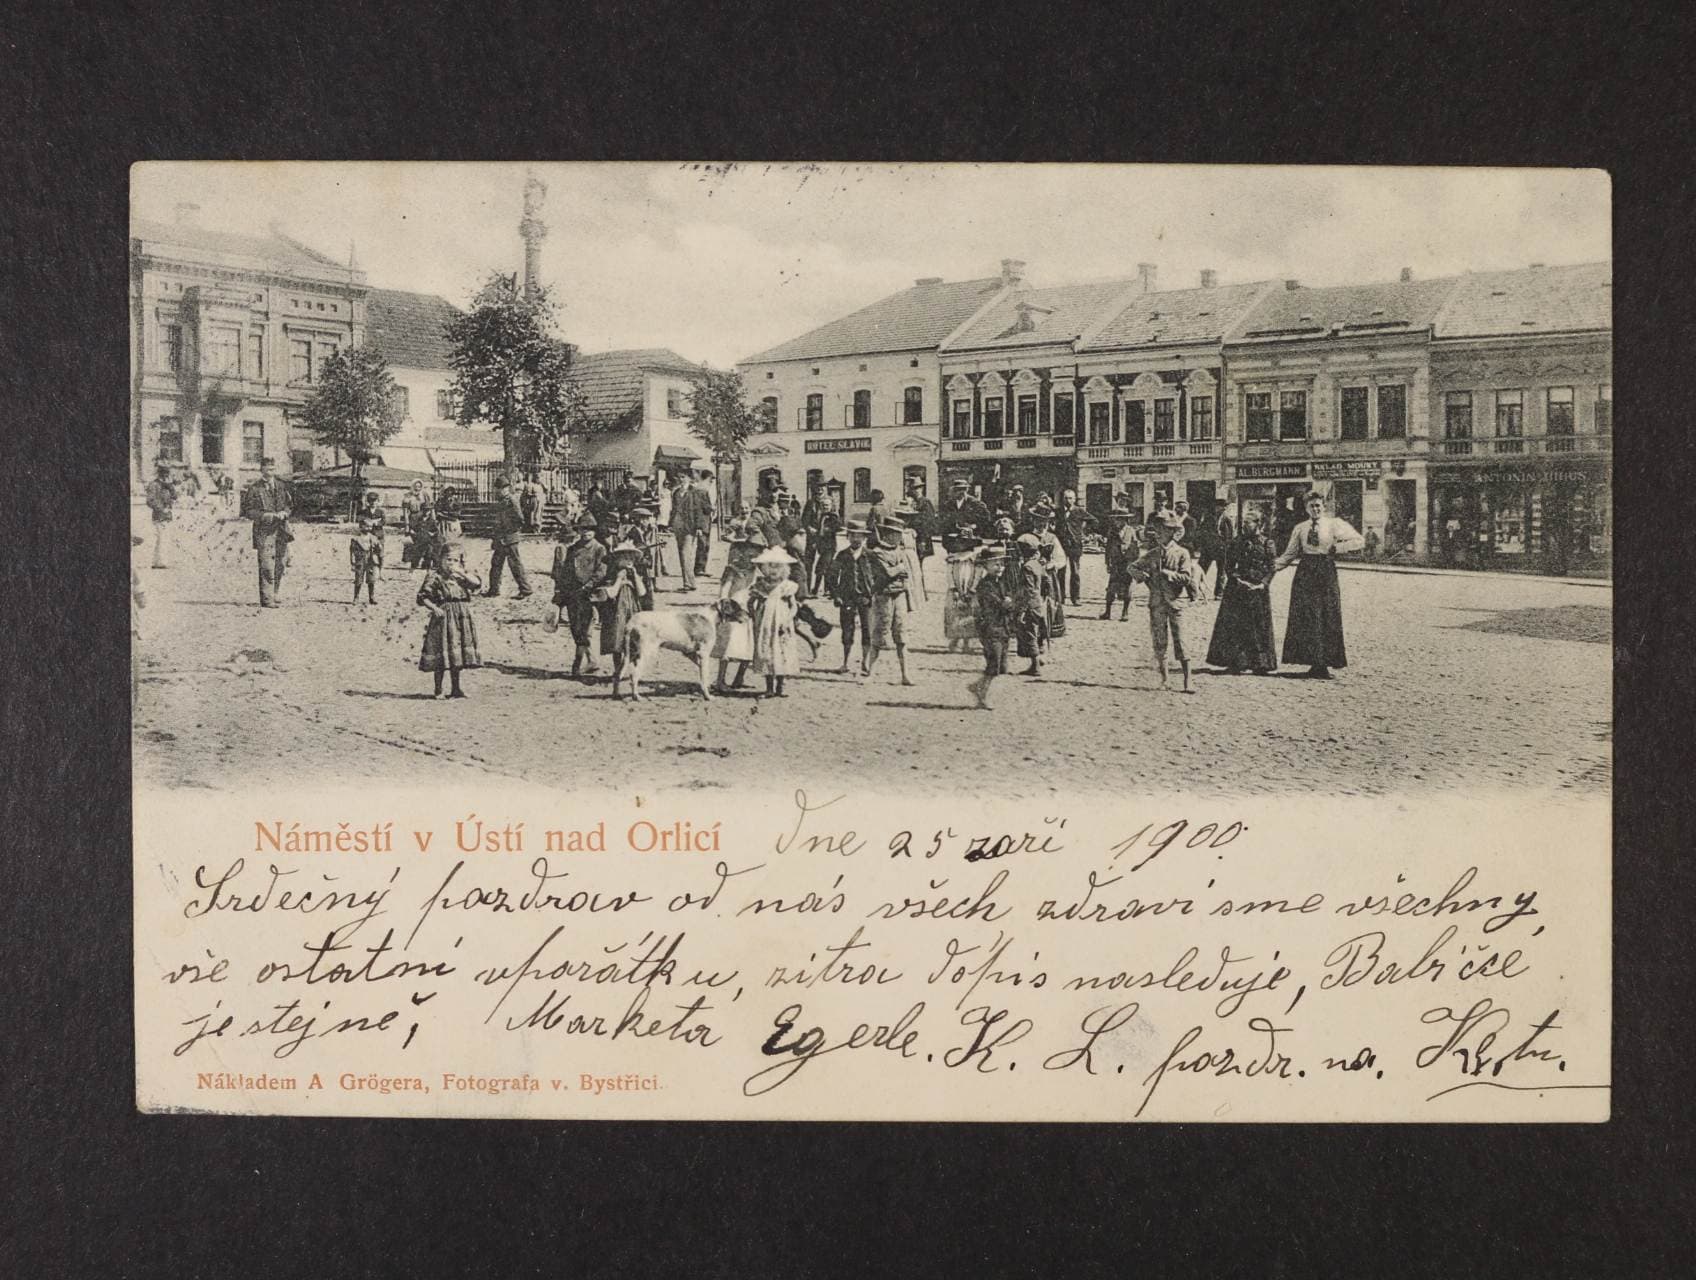 HOTEL SLAVIE
AL. BERGMANN.
SKLAD MOUKY
ANTONÍN
Náměstí v Ústí nad Orlicí dne 25 zaří 1900.
Srdečný pozdrav od nás všech zdraví sme všechny,
vše ostatní vpořátku, zitra dópis nasleduje, Babičče
je stejně, Marketa Egerle. K. L. pozdr. na.
Nákladem A Grögera, Fotografa v. Bystřici.